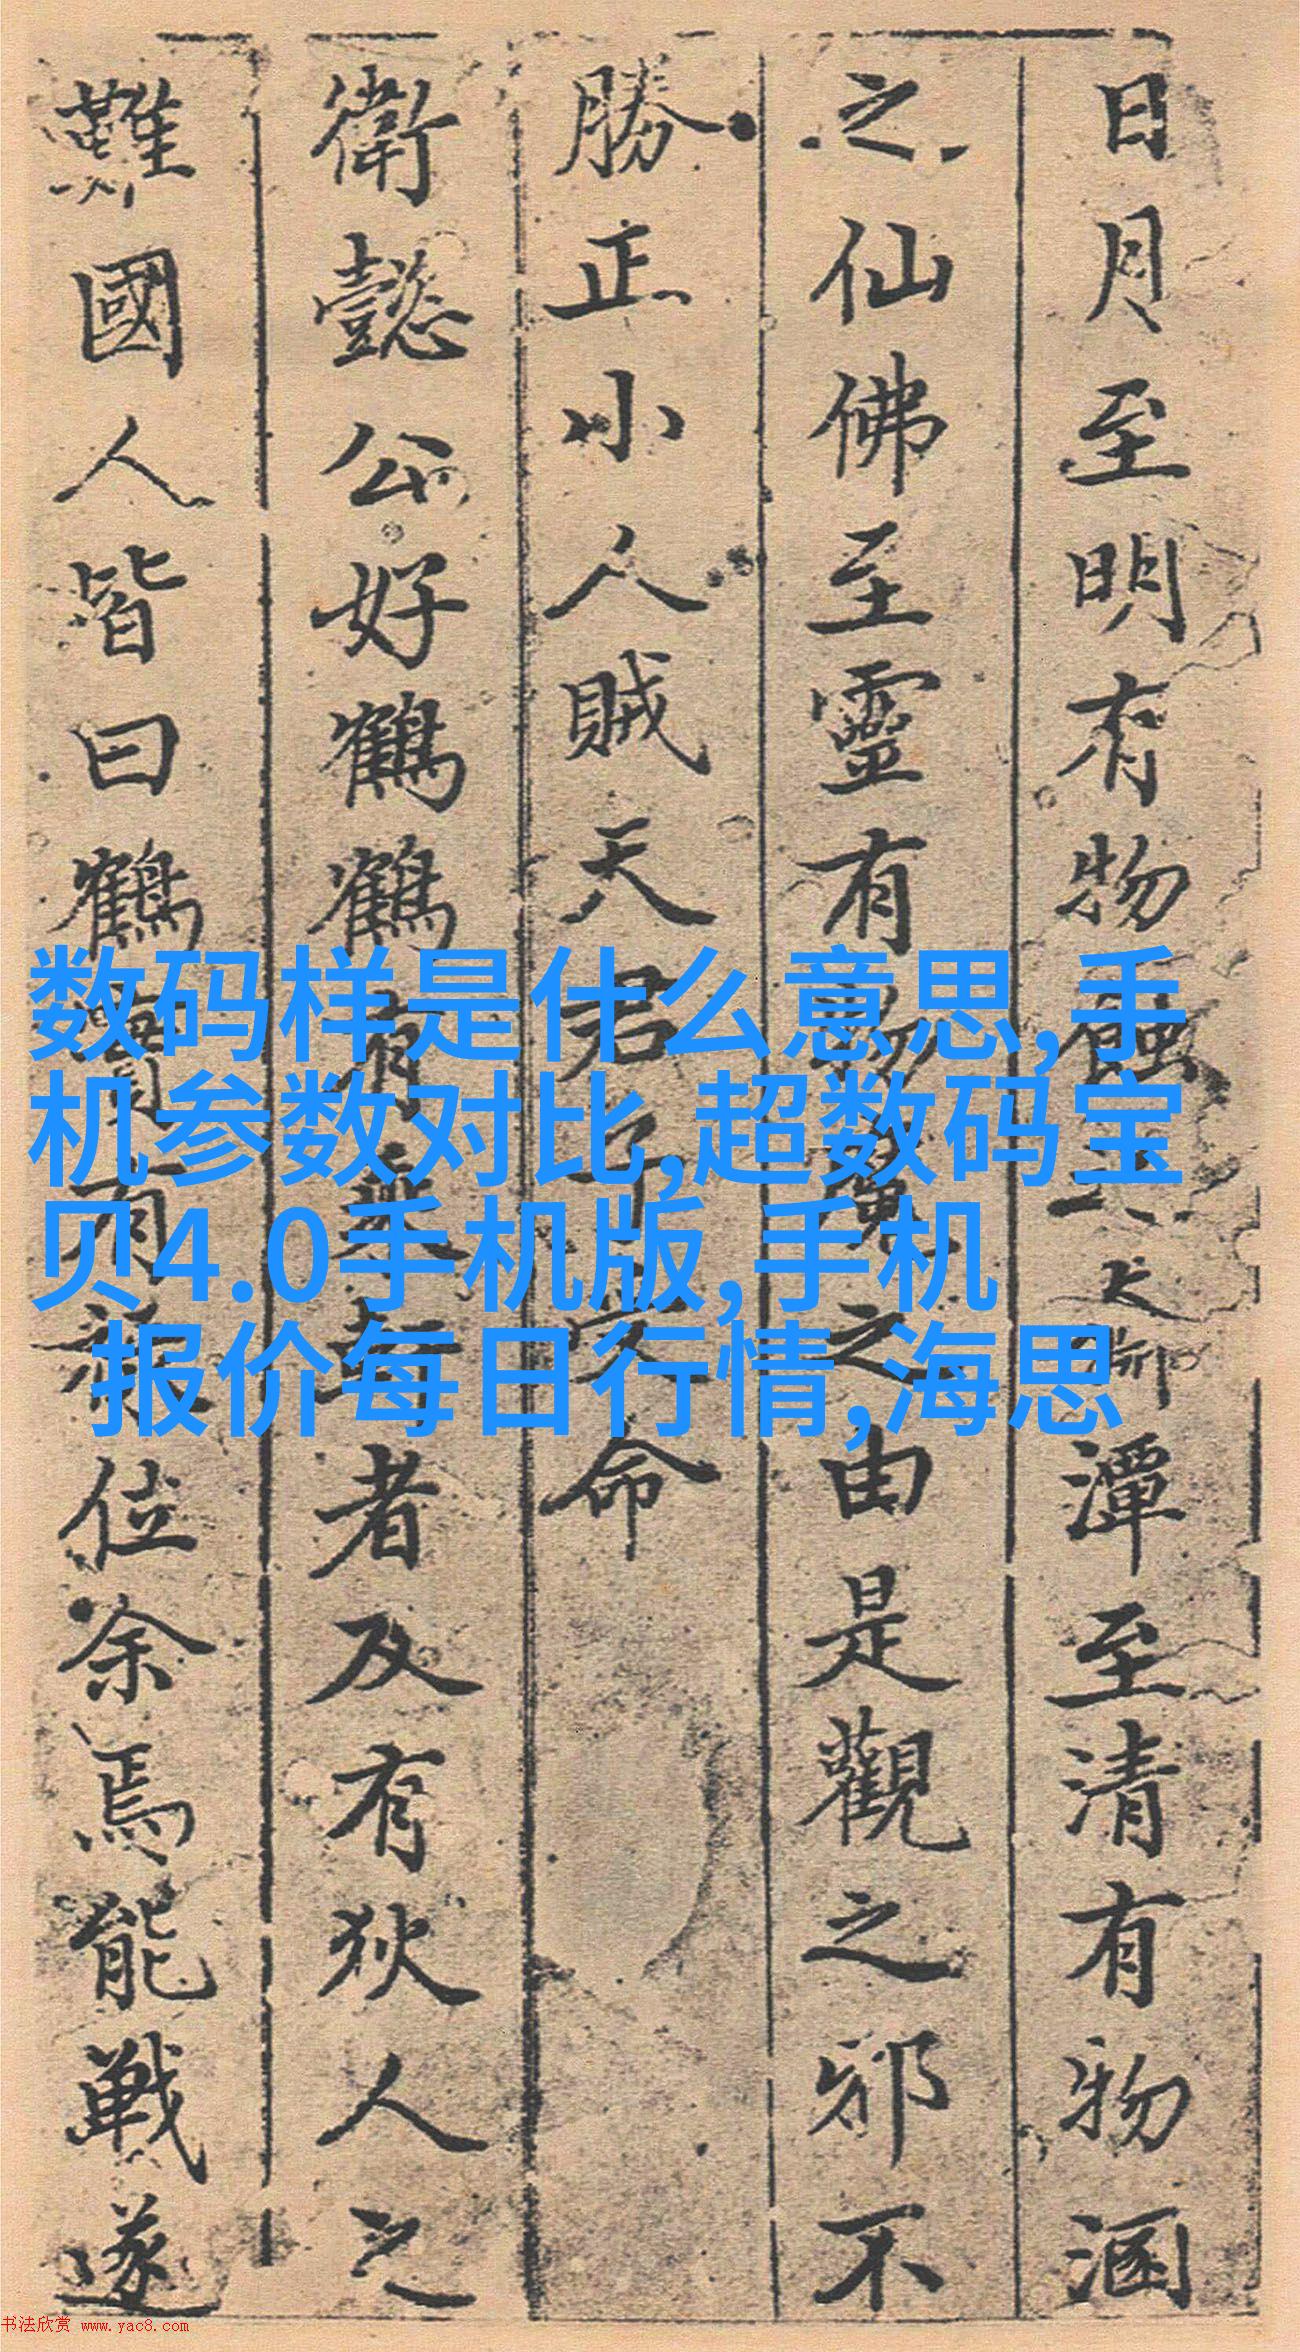 日月至明有物蝕
潭至清有物涵
之仙佛至靈有
之由是觀之邪不
勝正小人賊天君
命
衛懿公好鶴鶴有乘軒者及有狄人之
難國人皆曰鶴實有祿位余焉能戰遂
数码样是什么意思,手
机参数对比,超数码宝
贝4.0手机版,手机
报价每日行情,海思
书法欣赏 www.yac8.com